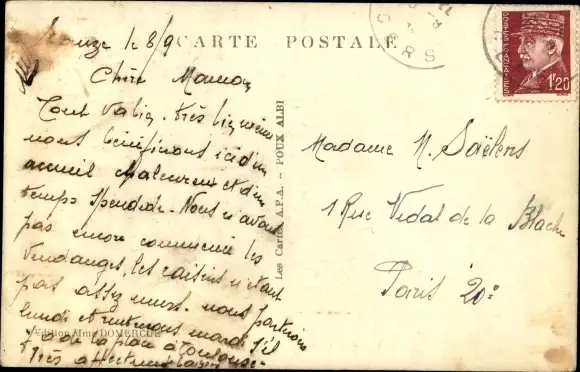 CARTE POSTALE
Eauze le 8/9
Chère Maman
Tout va bien. très bien même
nous bénéficions ici d'un
accueil chaleureux et d'un
temps splendide. Nous n'avons
pas encore commencé les
vendanges, les raisins n'étant
pas assez murs. nous partirons
lundi et rentrerons mardi s'il
y a de la place à Toulouse.
Très affectueusement
Edition Mme DOMERCUE
Les Cartes A.P.A. — POUX ALBI
GERS
1F20
Madame M. Saëlens
1 Rue Vidal de la Blache
Paris 20e